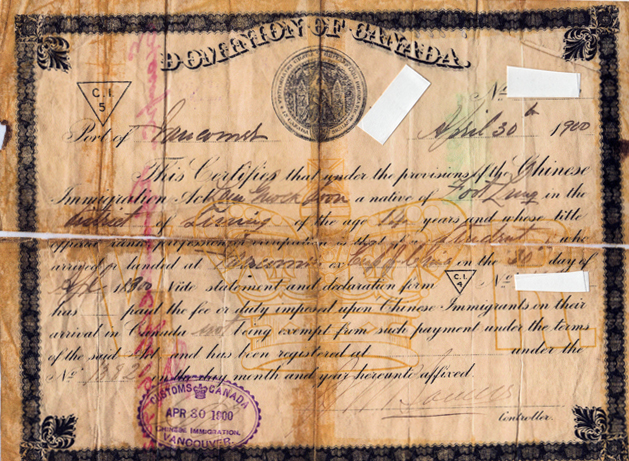 DOMINION OF CANADA.
C.I.
5
No
Port of Vancouver April 30th 1900
This Certifies that under the provisions of the Chinese
Immigration Act a native of in the
district of of the age years and whose title
official rank profession or occupation is that of a Student who
arrived or landed at Vancouver ex on the 30th day of
1900 Vide statement and declaration form C.I. 4 No
has paid the fee or duty imposed upon Chinese Immigrants on their
arrival in Canada not being exempt from such payment under the terms
of the said Act and has been registered at under the
No on the day month and year hereunto affixed
CUSTOMS CANADA
APR 30 1900
CHINESE IMMIGRATION
VANCOUVER.
Controller.